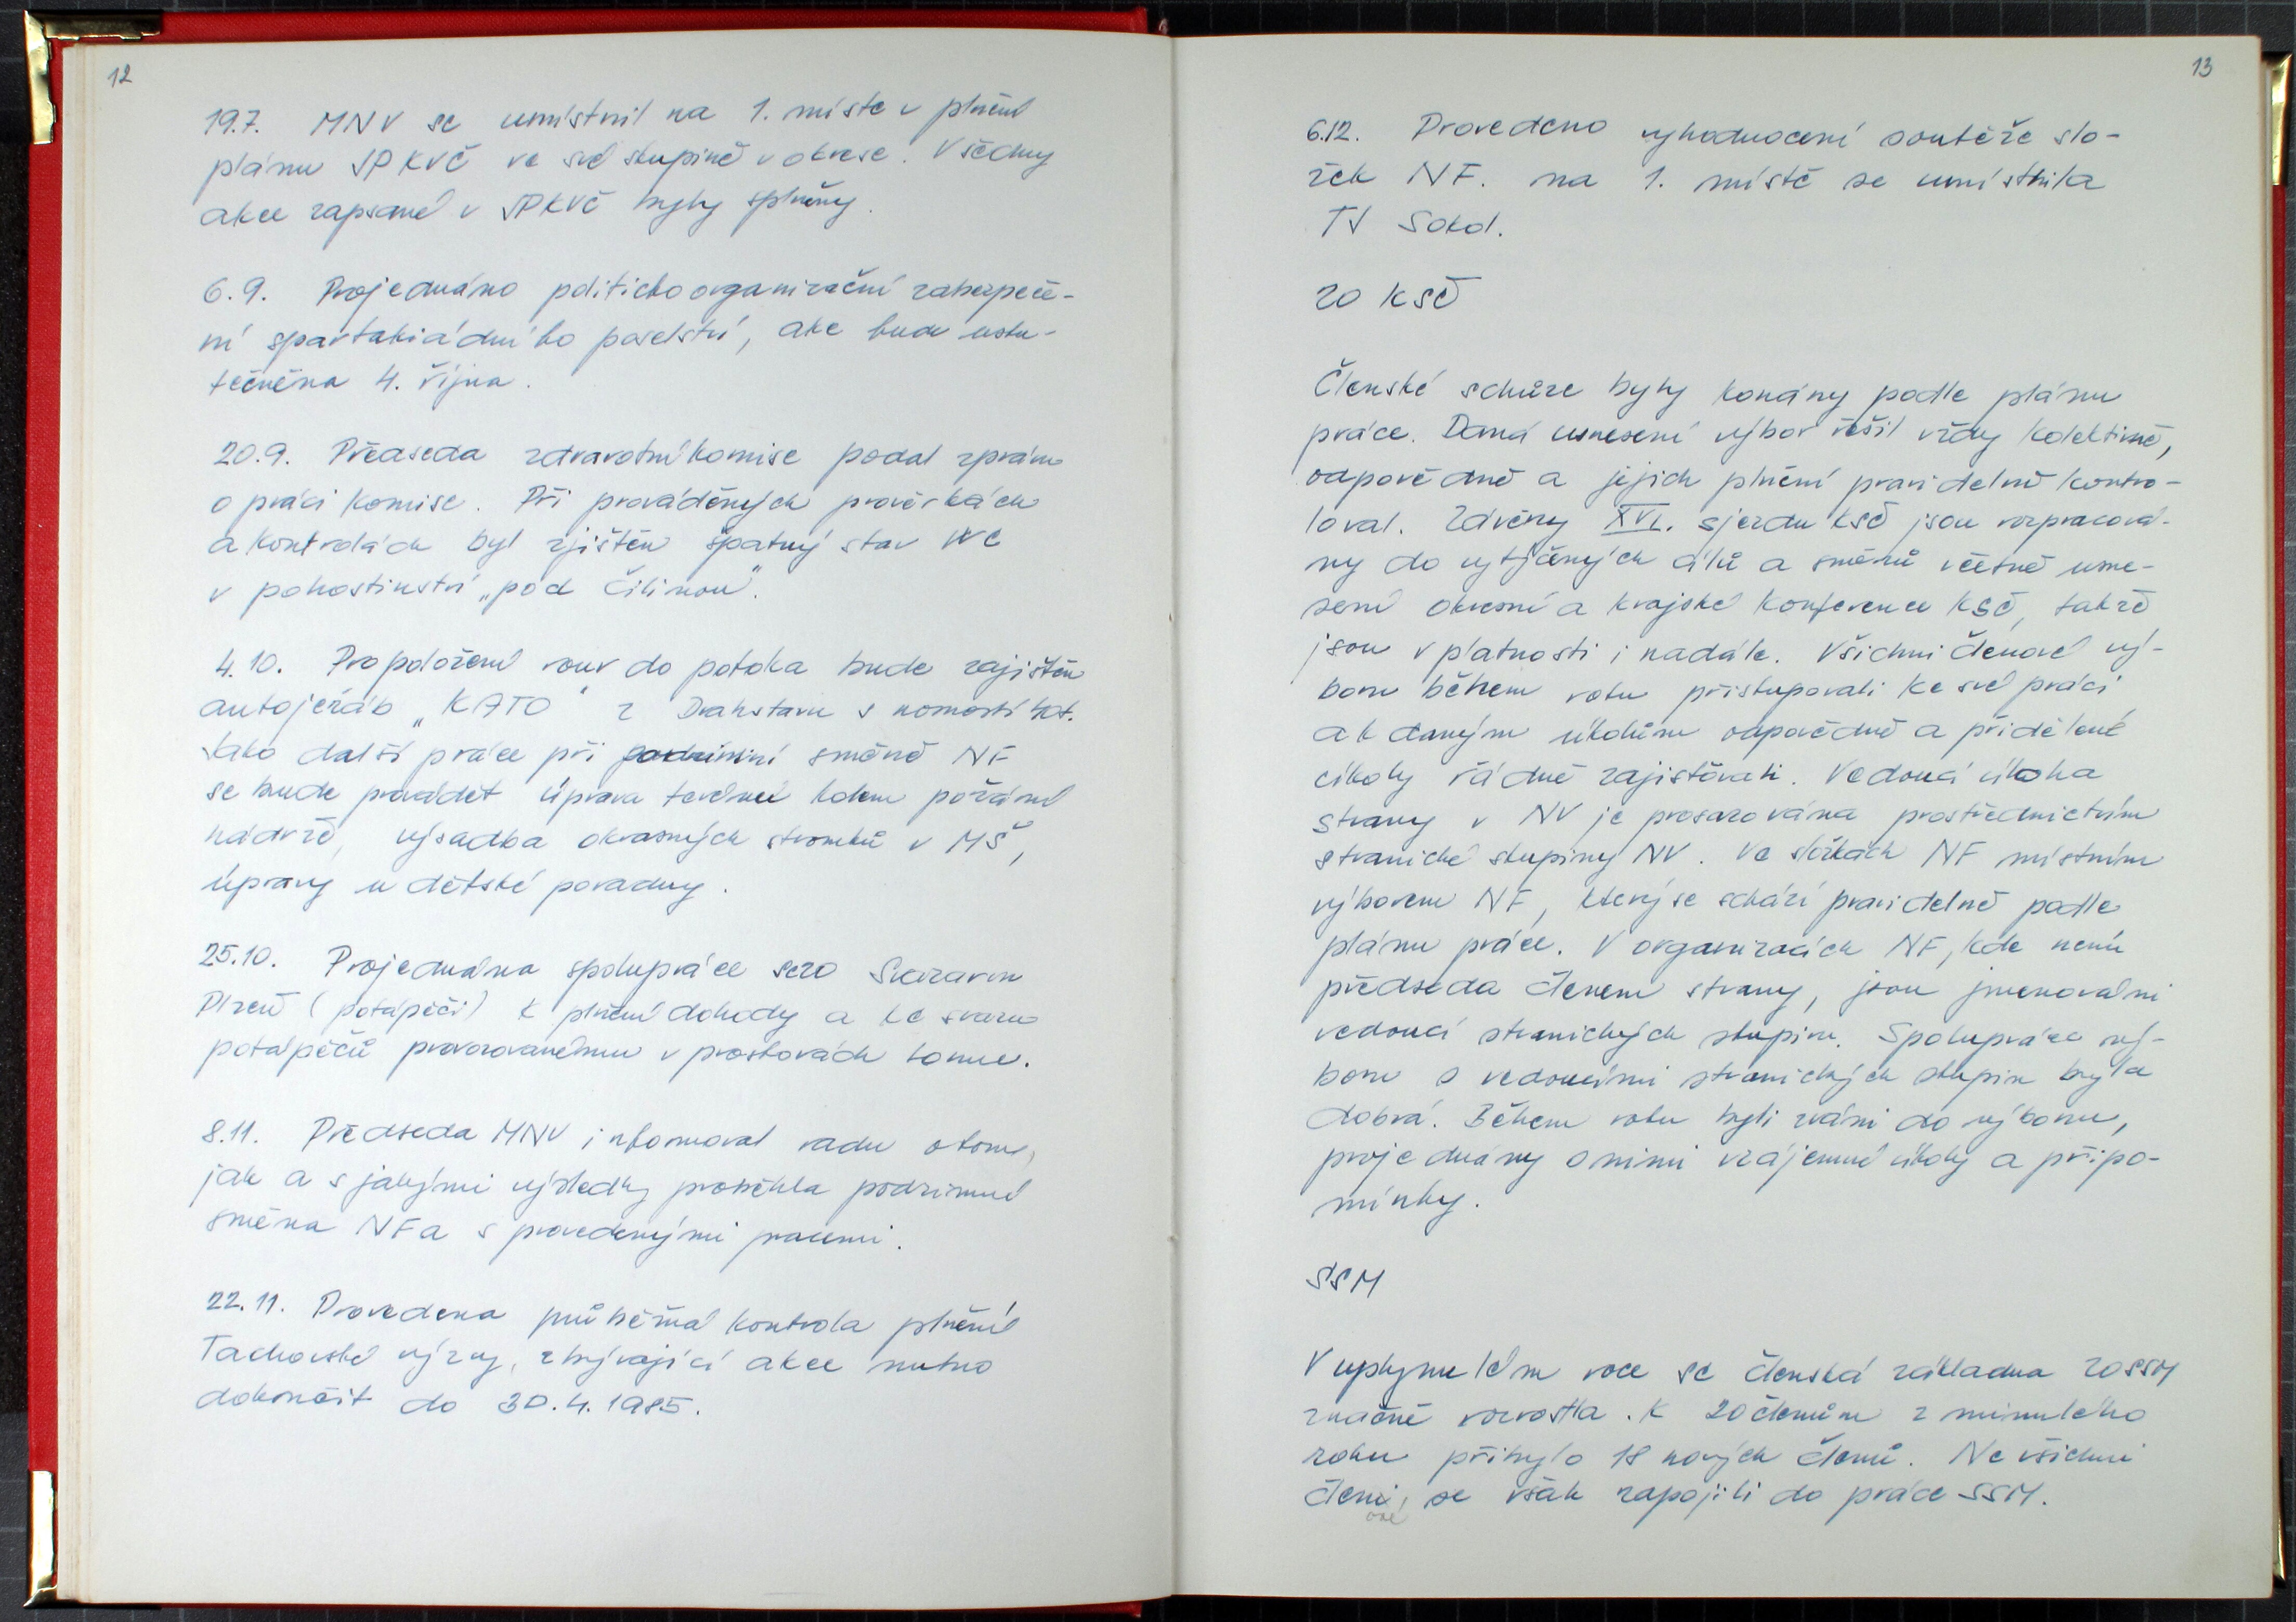 12
19.7. MNV se umístnil na 1. míste v plnění
plánu JPKVČ ve své skupině v okrese. Všechny
akce zapsané v JPKVČ byly splněny.
6.9. Projednáno politickoorganizační zabezpeče-
ní spartakiádního poselství, ake bude usku-
tečněna 4. října.
20.9. Předseda zdravotní komise podal zprávu
o práci komise. Při prováděných prověrkách
a kontrolách byl zjištěn špatný stav WC
v pohostinství „pod Čilinou".
4.10. Pro položení rour do potoka bude zajištěn
autojeřáb „KATO" z Drahstavu s nosností 40t.
Jako další práce při podzimní směně NF
se bude provádět úprava terénu kolem požární
nádrže, výsadba okrasných stromků v MŠ,
úpravy u dětské poradny.
25.10. Projednána spolupráce se ZO Svazarm
Plzeň (potápěči) k plnění dohody a ke srazu
potápěčů provozovanému v prostorách lomu.
8.11. Předseda MNV informoval radu o tom,
jak a s jakými výsledky proběhla podzimní
směna NF a s provedenými pracemi.
22.11. Provedena průběžná kontrola plnění
Tachovské výzvy, zbývající akce nutno
dokončit do 30.4.1985.
13
6.12. Provedeno vyhodnocení soutěže slo-
žek NF. na 1. místě se umístnila
TJ Sokol.
ZO KSČ
Členské schůze byly konány podle plánu
práce. Daná usnesení výbor řešil vždy kolektivně,
odpovědně a jejich plnění pravidelně kontro-
loval. Závěry XVI. sjezdu KSČ jsou rozpracová-
ny do vytýčených cílů a směrů včetně usne-
sení okresní a krajské konference KSČ, takže
jsou v platnosti i nadále. Všichni členové vý-
boru během roku přistupovali ke své práci
a k daným úkolům odpovědně a přidělené
úkoly řádně zajistovali. Vedoucí úloha
strany v NV je prosazována prostřednictvím
stranické skupiny NV. Ve složkách NF místním
výborem NF, který se schází pravidelně podle
plánu práce. V organizacích NF, kde není
předseda členem strany, jsou jmenováni
vedoucí stranických skupin. Spolupráce vý-
boru s vedoucími stranických skupin byla
dobrá. Během roku byli zváni do výboru,
projednány s nimi vzájemné úkoly a připo-
mínky.
SSM
V uplynulém roce se členská základna ZO SSM
značně rozrostla. K 20 členům z minulého
roku přibylo 18 nových členů. Ne všichni
členi, se však zapojili do práce SSM.
ové